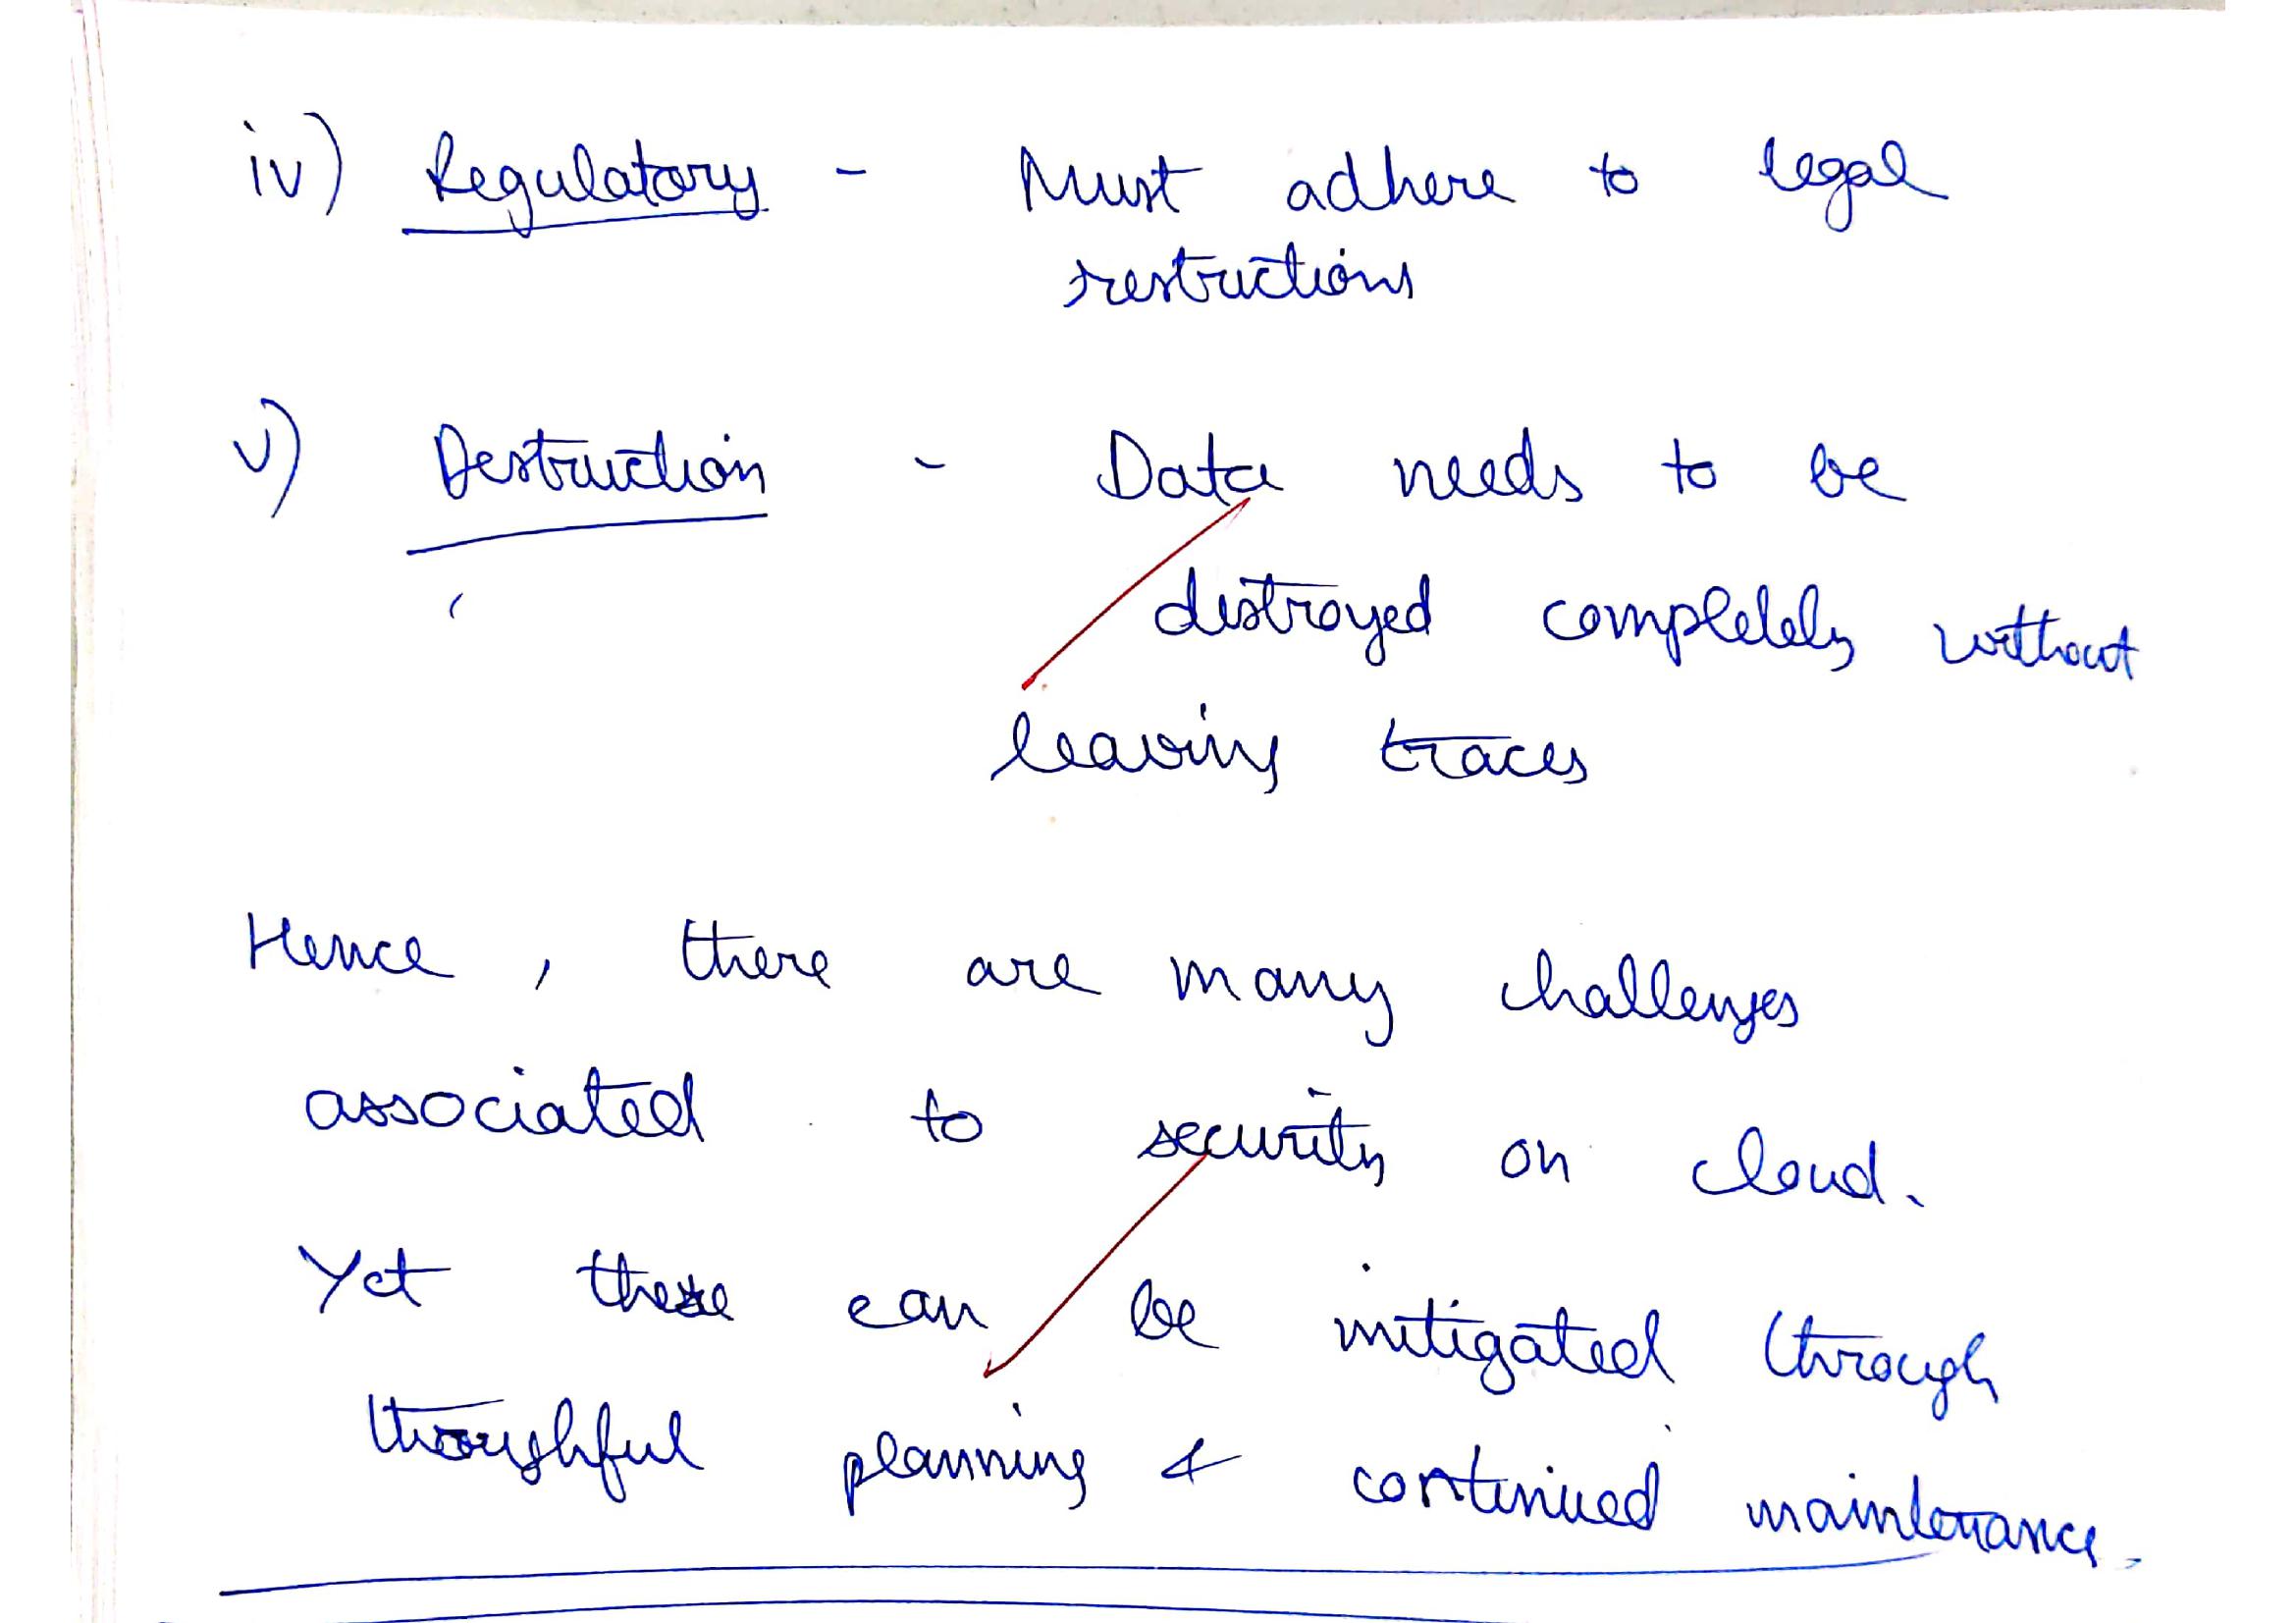 iv) Regulatory - Must adhere to legal
restructions
v) Destruction - Data needs to be
distroyed completely without
leaving traces
Hence, there are many challenges
associated to security on cloud.
Yet these can be mitigated through
thoughful planning & continued maintenance.